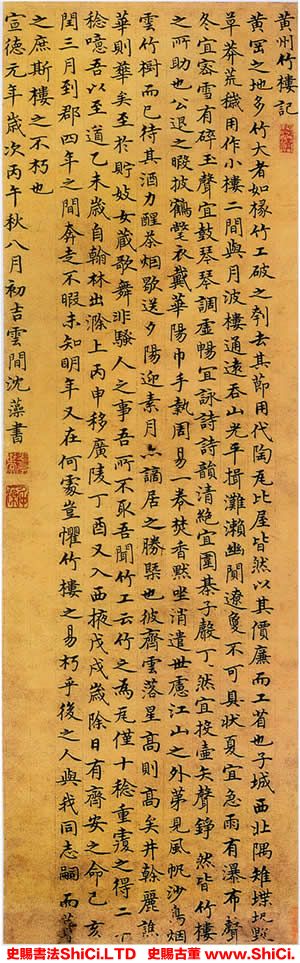 黃州竹樓記
黃岡之地多竹大者如椽竹工破之刳去其節用代陶瓦比屋皆然以其價廉而工省也子城西北隅雉堞圮毀
草莽荒穢用作小樓二間與月波樓通遠吞山光平挹灘瀨幽闃遼夐不可具狀夏宜急雨有瀑布聲
冬宜密雪有碎玉聲宜鼓琴琴調虛暢宜詠詩詩韻清絕宜圍棊子聲丁丁然宜投壺矢聲錚然皆竹樓
之所助也公退之暇披鶴氅衣戴華陽巾手執周易一卷焚香默坐消遣世慮江山之外第見風帆沙鳥烟
雲竹樹而已待其酒力醒茶烟歇送夕陽迎素月亦謫居之勝槩也彼齊雲落星高則高矣井幹麗譙
華則華矣至於貯妓女藏歌舞非騷人之事吾所不取吾聞竹工云竹之為瓦僅十稔重覆之得二十
稔噫吾以至道乙未歲自翰林出滁上丙申移廣陵丁酉又入西掖戊戌歲除日有齊安之命己亥
閏三月到郡四年之間奔走不暇未知明年又在何處豈懼竹樓之易朽乎後之人與我同志嗣而葺
之庶斯樓之不朽也
宣德元年歲次丙午秋八月初吉雲間沈藻書
史賜書法ShiCi.LTD 史賜古董 ShiCi.COM